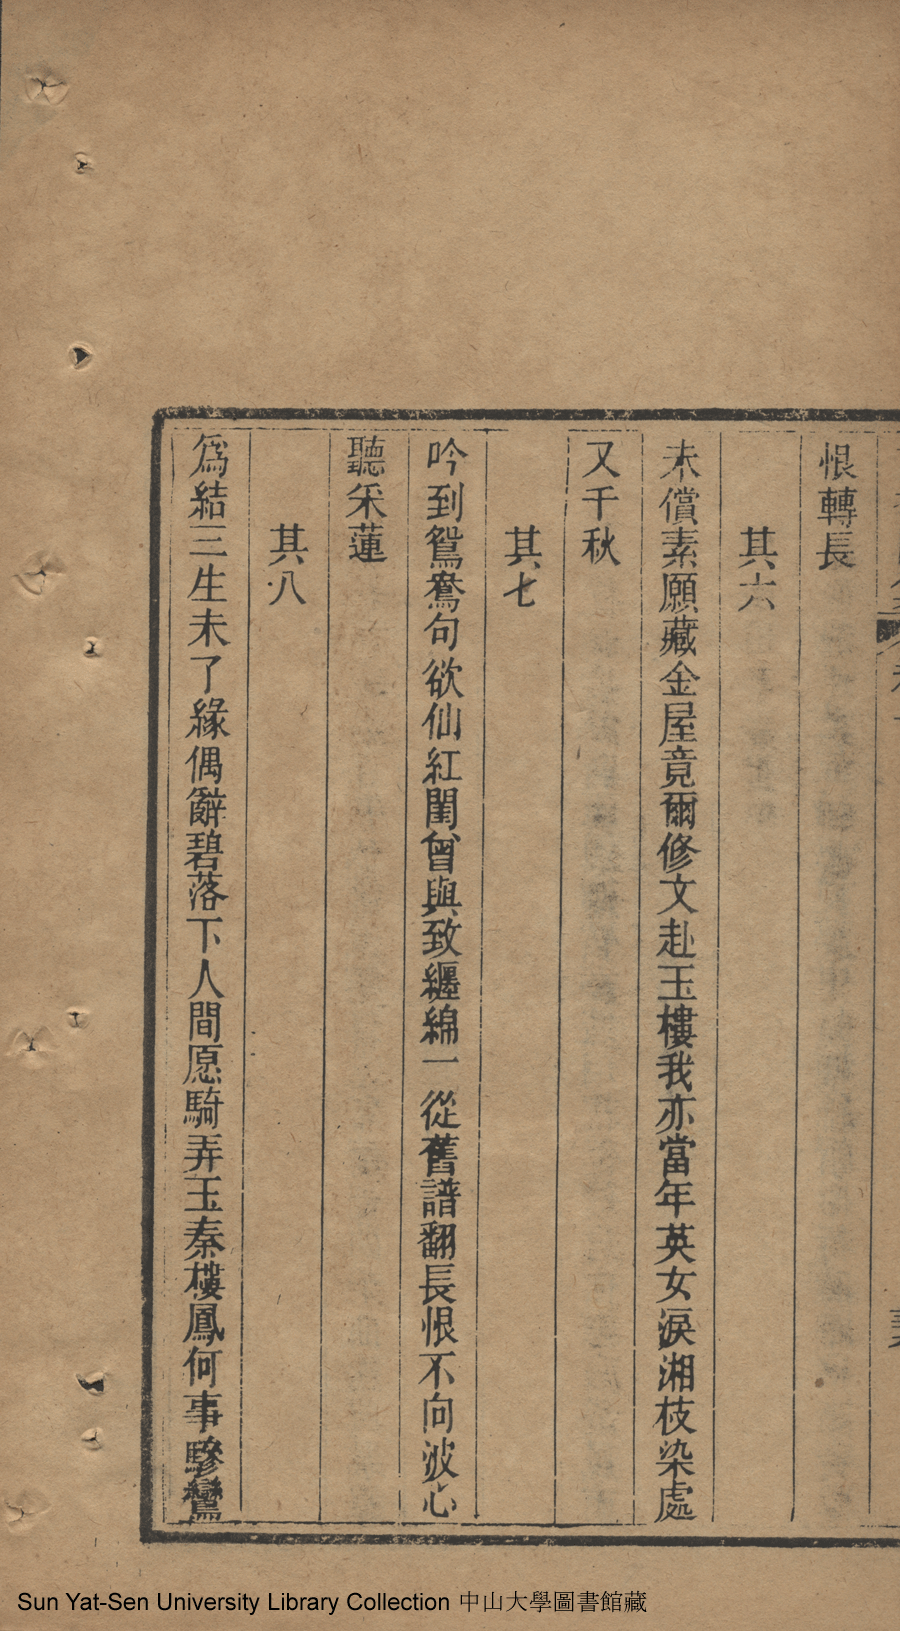 恨轉長
其六
未償素願藏金屋竟爾修文赴玉樓我亦當年英女淚湘枝染處
又千秋
其七
吟到鴛鴦句欲仙紅閨曾與致纏綿一從舊譜翻長恨不向波心
聽采蓮
其八
爲結三生未了緣偶辭碧落下人間愿騎弄玉秦樓鳳何事驂鸞
Sun Yat-Sen University Library Collection 中山大學圖書館藏